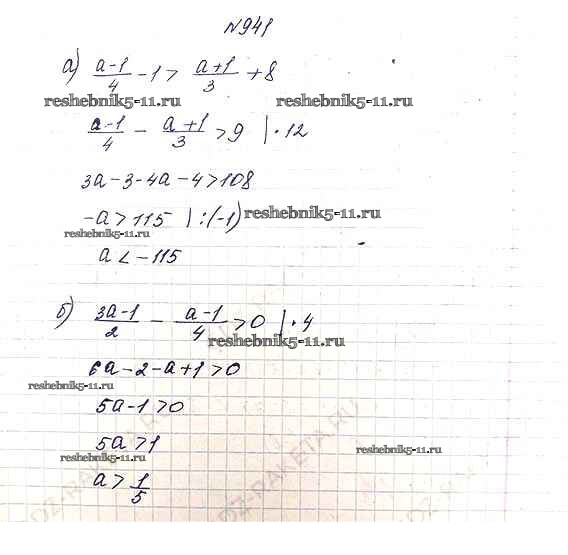 №941
а) (a-1)/4 - 1 > (a+1)/3 + 8
reshebnik5-11.ru reshebnik5-11.ru
(a-1)/4 - (a+1)/3 > 9 | · 12
3a - 3 - 4a - 4 > 108
-a > 115 | : (-1) reshebnik5-11.ru
reshebnik5-11.ru
a < -115
б) (3a-1)/2 - (a-1)/4 > 0 | · 4
reshebnik5-11.ru
6a - 2 - a + 1 > 0
reshebnik5-11.ru
5a - 1 > 0
5a > 1
reshebnik5-11.ru reshebnik5-11.ru
a > 1/5